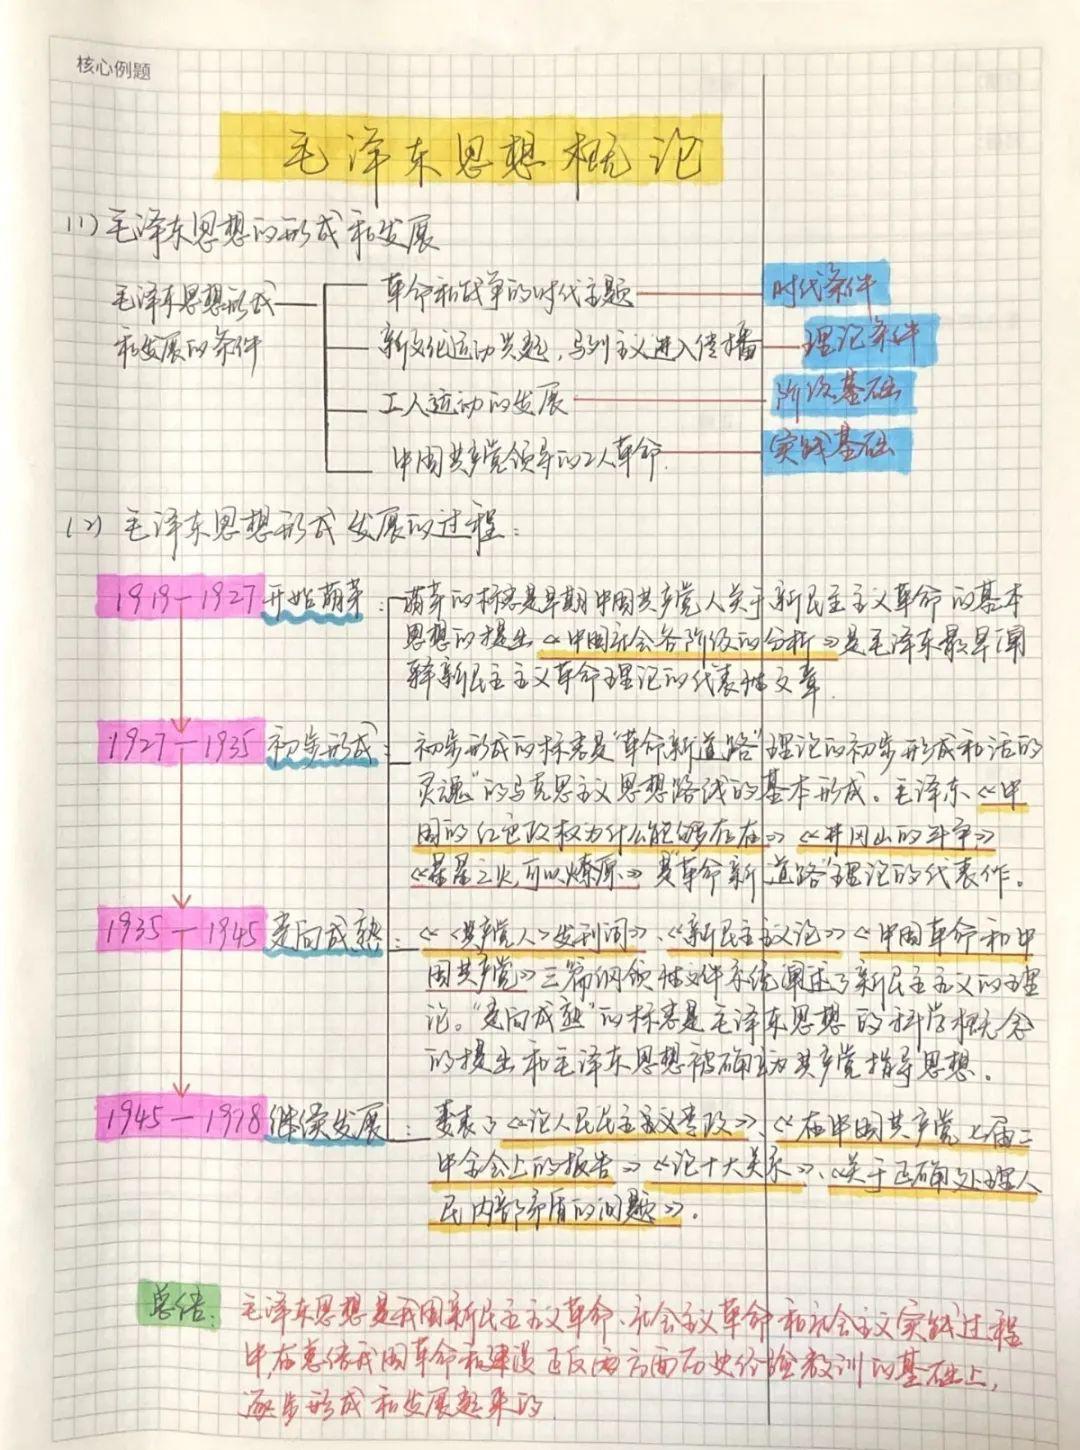 核心例题
毛泽东思想概论
(1) 毛泽东思想的形成和发展
毛泽东思想形成
和发展的条件
革命和战争的时代主题 时代条件
新文化运动兴起,马列主义进入传播 理论条件
工人运动的发展 阶级基础
中国共产党领导的工人革命. 实践基础
(2) 毛泽东思想形成发展的过程:
1919—1927 开始萌芽: 萌芽的标志是早期中国共产党人关于新民主主义革命的基本
思想的提出《中国社会各阶级的分析》是毛泽东最早阐
释新民主主义革命理论的代表性文章.
1927—1935 初步形成: 初步形成的标志是“革命新道路”理论的初步形成和活的
灵魂”的马克思主义思想路线的基本形成。毛泽东、《中
国的红色政权为什么能够存在》《井冈山的斗争》
《星星之火,可以燎原》是“革命新道路”理论的代表作。
1935—1945 走向成熟: 《<共产党人>发刊词》、《新民主主义论》《中国革命和中
国共产党》三篇纲领性文件系统阐述了新民主主义的理
论。“走向成熟”的标志是毛泽东思想的科学概念
的提出和毛泽东思想被确立为共产党指导思想.
1945—1978 继续发展: 发表了《论人民民主主义专政》、《在中国共产党七届二
中全会上的报告》《论十大关系》、《关于正确处理人
民内部矛盾的问题》.
总结: 毛泽东思想是我国新民主主义革命、社会主义革命和社会主义实践过程
中,在总结我国革命和建设正反两方面历史经验教训的基础上,
逐步形成和发展起来的.